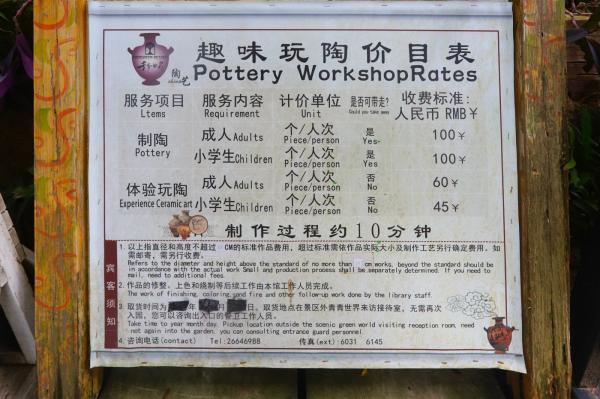 陶艺
趣味玩陶价目表
Pottery WorkshopRates
服务项目 服务内容 计价单位 是否可带走? 收费标准:
Ltems Requirement Unit Gould you take away 人民币 RMB¥
制陶 成人Adults 个/人次 是 100¥
Pottery Piece/person Yes
小学生Children 个/人次 是 100¥
Piece/person Yes
体验玩陶 成人Adults 个/人次 否 60¥
Experience Ceramic art Piece/person No
小学生Children 个/人次 否 45¥
Piece/person No
制作过程约10分钟
宾客须知
1. 以上指直径和高度不超过 CM的标准作品费用，超过标准需依作品实际大小及制作工艺另行确定费用。如
需邮寄，需另行收费。
Refers to the diameter and height above the standard of no more than cm works, beyond the standard should be
in accordance with the actual work Small and production process shall be separately determined. If you need to
mail, need to additional fees.
2. 作品的修整、上色和烧制等后续工作由本馆工作人员完成。
The work of finishing, coloring and fire and other follow-up work done by the library staff.
3. 取货时间为 年 月 日、取货地点在景区外青青世界来访接待室，无需再次
入园，您可以咨询出入口的警卫工作人员。
Take time to year month day. Pickup location outside the scenic green world visiting reception room, need
not again into the garden, you can consulting entrance guard personnel.
4. 咨询电话(contact) Tel:26646988 传真(ext):6031 6145